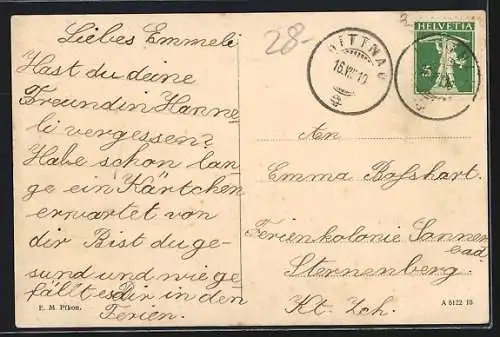 Liebes Emmeli
Hast du deine
Freundin Hanne-
li vergessen?
Habe schon lan
ge ein Kärtchen
erwartet von
dir Bist du ge-
sund und wie ge
fällt es Dir in den
Ferien.
E. M. Pfkon.
28-
HITTNAU
16.VII.10
HELVETIA
5
An
Emma Bosshart.
Ferienkolonie Sonnen
bad
Sternenberg.
Kt. Zch.
A 5122 10